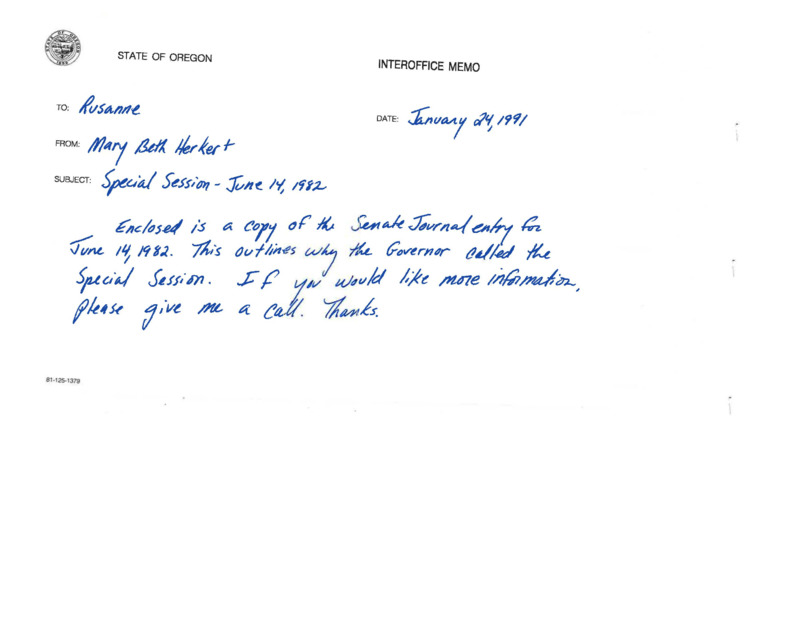 STATE OF OREGON
1859
STATE OF OREGON
INTEROFFICE MEMO
TO: Rusanne
DATE: January 24, 1991
FROM: Mary Beth Herkert
SUBJECT: Special Session - June 14, 1982
Enclosed is a copy of the Senate Journal entry for
June 14, 1982. This outlines why the Governor called the
Special Session. If you would like more information,
please give me a call. Thanks.
81-125-1379